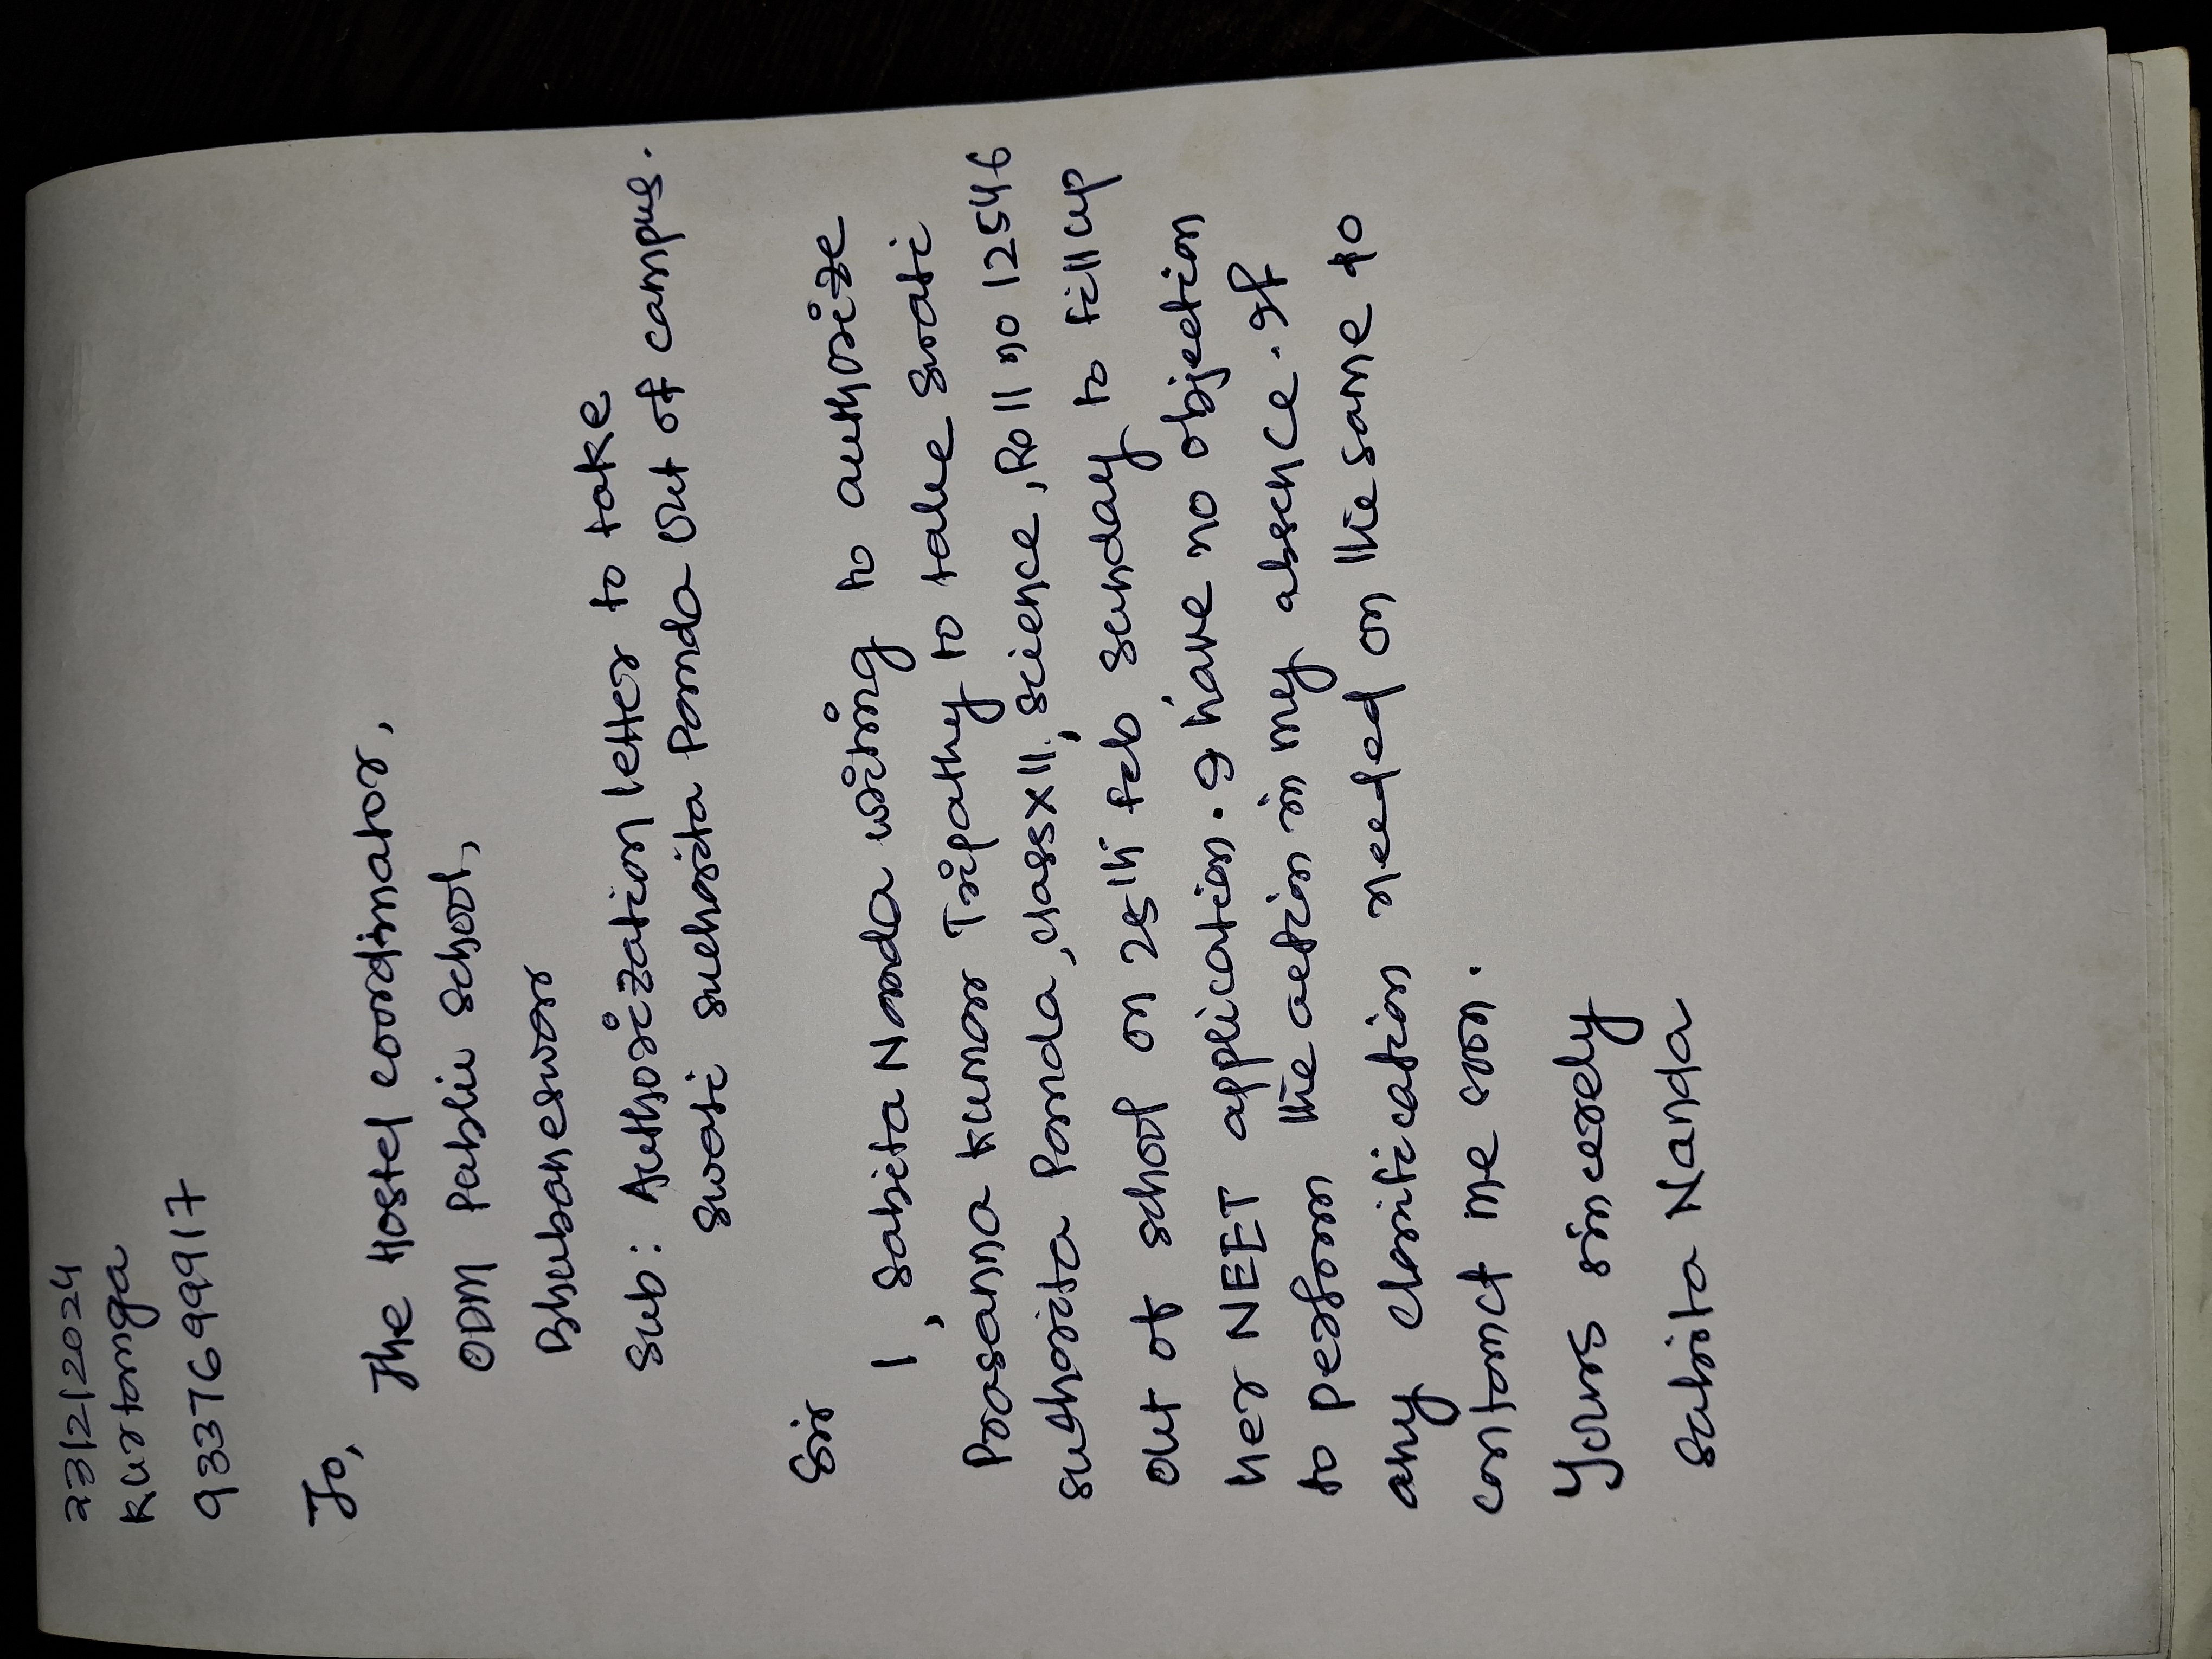 23/2/2024
Kurtanga
9337699917
To,
The Hostel coordinator,
ODM Public School,
Bhubaneswar
Sub: Authorization letter to take
Swati Sucharita Panda Out of campus.
Sir
I, Sabita Nanda writing to authorize
Prasanna Kumar Tripathy to take Swati
Sucharita Panda, class XII, Science, Roll no 12546
out of school on 25th feb sunday to fill up
her NEET application. I have no objection
to perform the action in my absence. If
any clarification needed on the same to
contanct me soon.
Yours sincerely
Sabita Nanda